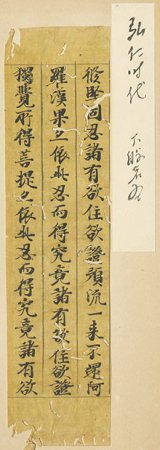 弘仁时代
堅固忍諸有欲住欲證預流一来不還阿
羅漢果之依此忍而得究竟諸有欲住欲證
獨覺所得菩提之依此忍而得究竟諸有欲